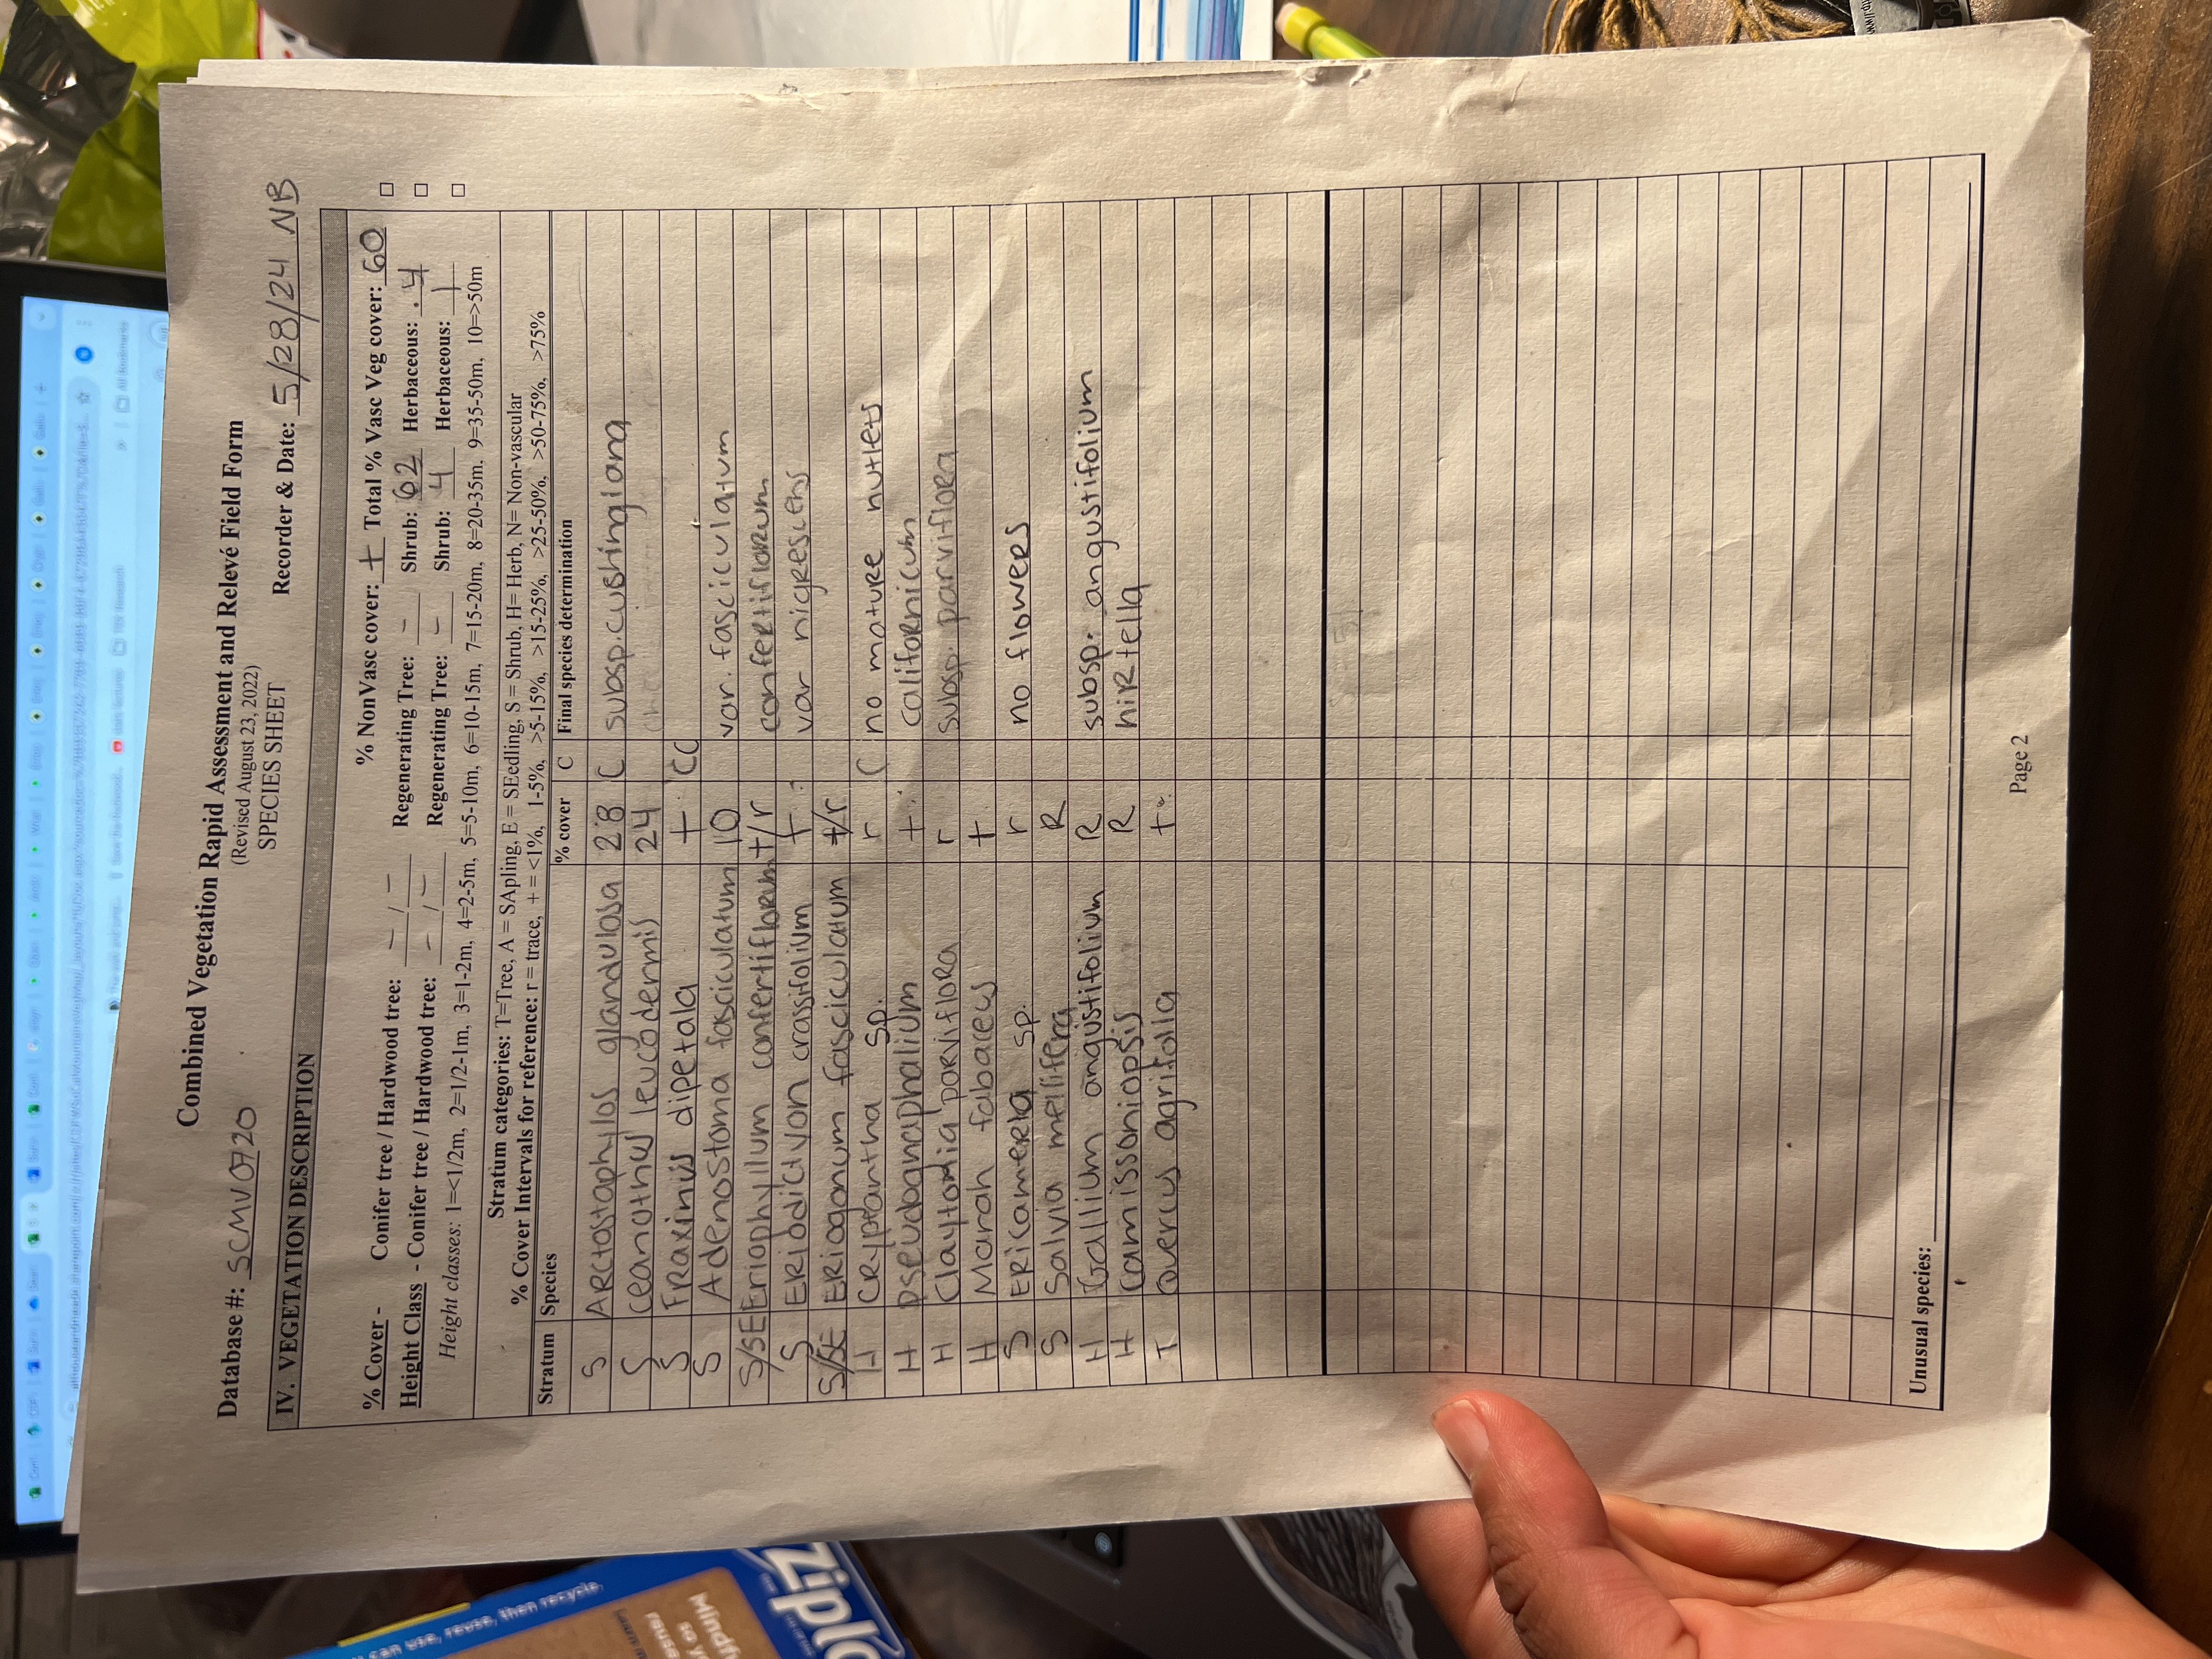 Combined Vegetation Rapid Assessment and Relevé Field Form
(Revised August 23, 2022)
SPECIES SHEET
Database #: SCMV0720 Recorder & Date: 5/28/24 NB
IV. VEGETATION DESCRIPTION
% NonVasc cover: + Total % Vasc Veg cover: 60
% Cover - Conifer tree / Hardwood tree: - / - Regenerating Tree: - Shrub: 62 Herbaceous: .4
Height Class - Conifer tree / Hardwood tree: - / - Regenerating Tree: - Shrub: 4 Herbaceous: 1
Height classes: 1=<1/2m, 2=1/2-1m, 3=1-2m, 4=2-5m, 5=5-10m, 6=10-15m, 7=15-20m, 8=20-35m, 9=35-50m, 10=>50m
Stratum categories: T=Tree, A = SApling, E = SEedling, S = Shrub, H= Herb, N= Non-vascular
% Cover Intervals for reference: r = trace, + = <1%, 1-5%, >5-15%, >15-25%, >25-50%, >50-75%, >75%
Stratum Species % cover C Final species determination
S Arctostaphylos glandulosa 28 C subsp. cushingiana
S Ceanothus leucodermis 24
S Fraxinus dipetala + CC
S Adenostoma fasciculatum 10 var. fasciculatum
S/SE Eriophyllum confertiflorum +/r confertiflorum
S Eriodictyon crassifolium + var nigrescens
S/SE Eriogonum fasciculatum +/r
H Cryptantha sp. r C no mature nutlets
H Pseudognaphalium + californicum
H Claytonia parviflora r subsp. parviflora
H Marah fabaceus +
S Ericameria sp. r no flowers
S Salvia mellifera R
H Gallium angustifolium R subsp. angustifolium
H Camissoniopsis R hirtella
T Quercus agrifolia +
Unusual species:
Page 2
can use, reuse, then recycle.
Ziplo